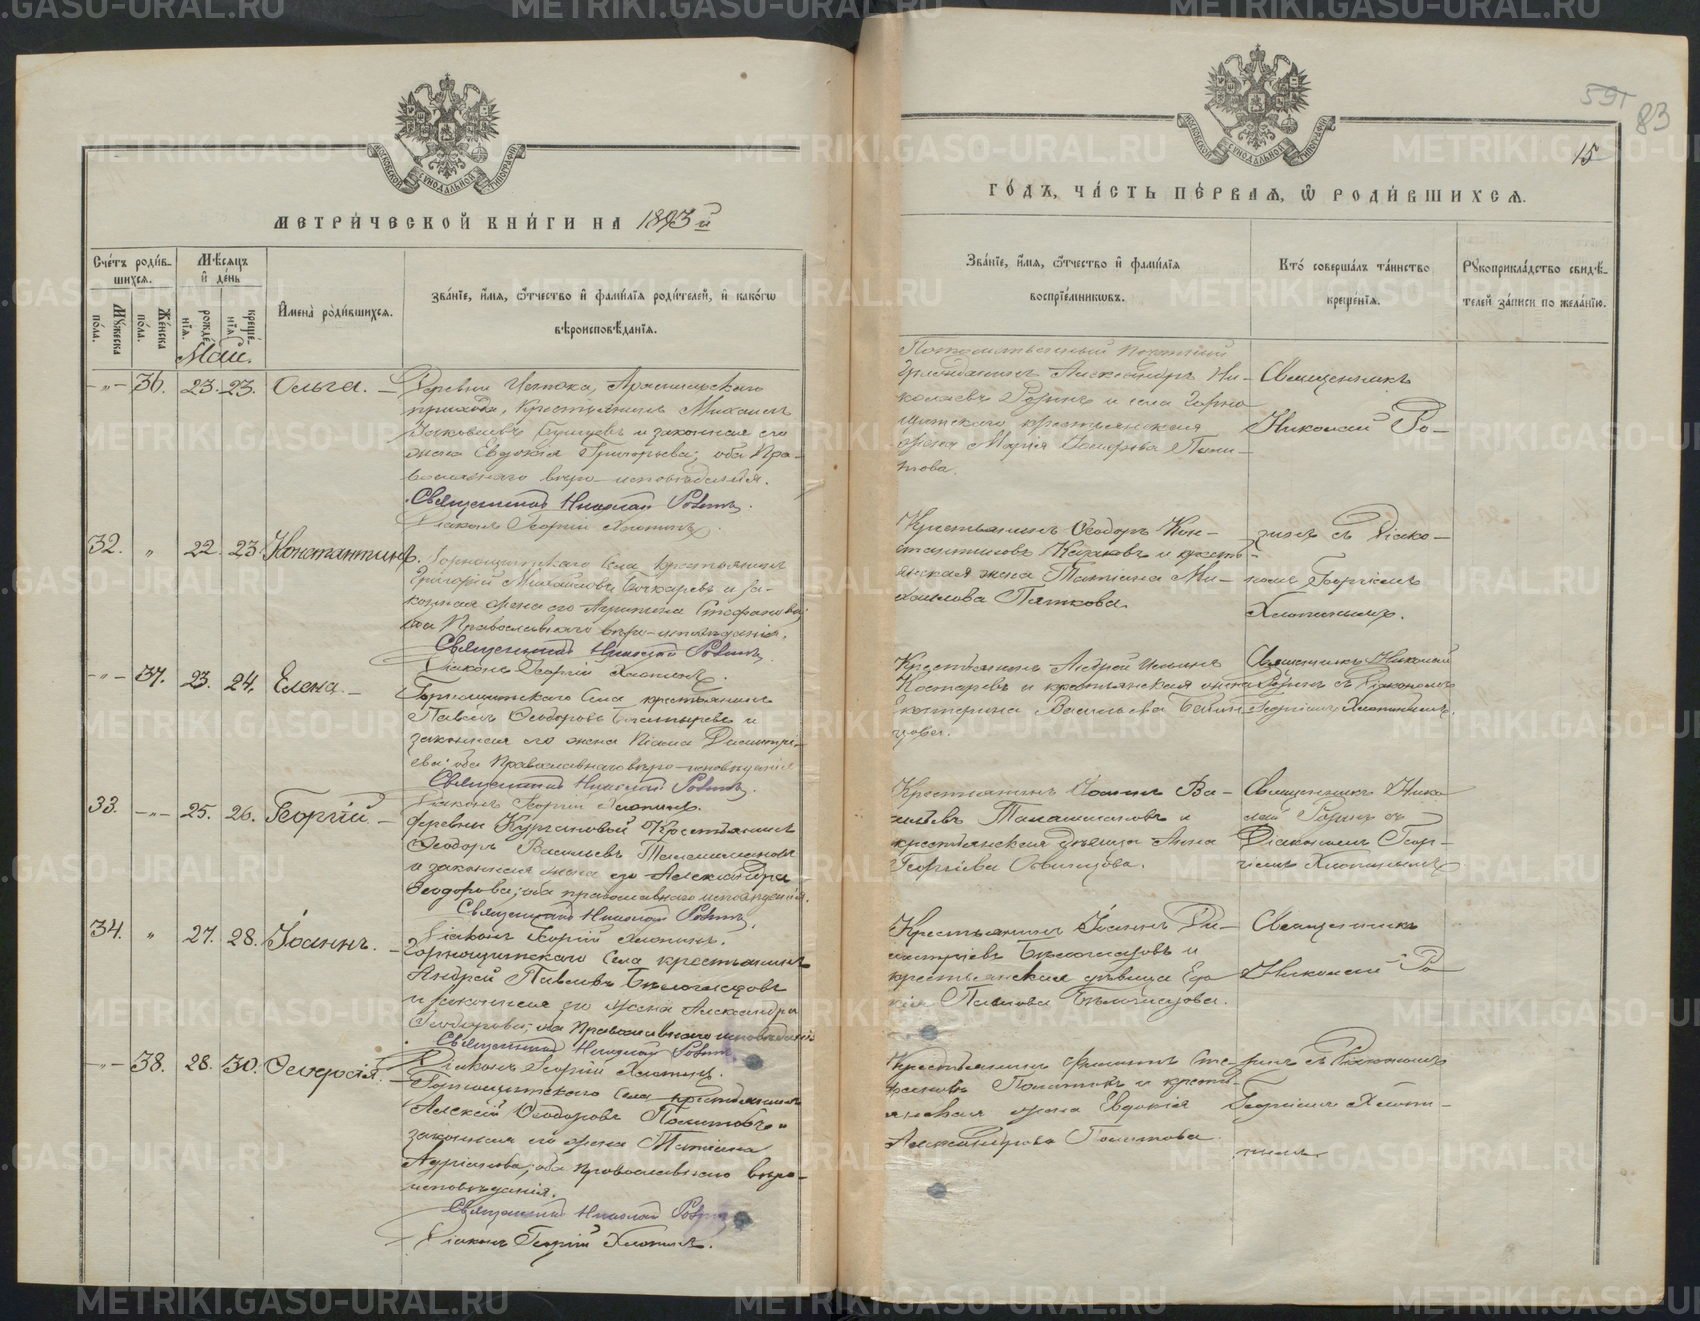 МЕТРИ́ЧЕСКОЙ КНИ́ГИ НА 1893й
Сче́тъ роди́вшихся.
Му́жеска по́ла.
Же́нска по́ла.
Мѣ́сяцъ и де́нь
рожде́нїѧ.
креще́нїѧ.
И҆мена̀ роди́вшихся.
Зва́нїе, и҆́мѧ, ѻ҆́тчество и҆ фами́лїѧ роди́телей, и҆ како́гѡ вѣроисповѣ́данїѧ.
Май.
-„- 36. 23. 23. Ольга.
Деревни Истока, Арамильского
прихода, крестьянинъ Михаилъ
Іаковлевъ и законная его
жена Евдокія Григорьева; оба Пра-
вославнаго вѣро-исповѣданія.
Священникъ Николай
Діаконъ Георгій Хлопинъ.
32. „ 22. 23. Константинъ.
Горнощитскаго Села крестьянинъ
Григорій Михайловъ Бочкаревъ и за-
конная жена его Стефанова;
оба Православнаго вѣро-исповѣданія.
Священникъ Николай
Діаконъ Георгій Хлопинъ.
-„- 37. 23. 24. Елена.
Горнощитскаго Села крестьянинъ
Павелъ Ѳеодоровъ и
законная его жена Димитрі-
ева; оба Православнаго вѣро-исповѣданія
Священникъ Николай
Діаконъ Георгій Хлопинъ.
33. -„- 25. 26. Георгій.
деревни Кургановой крестьянинъ
Ѳеодоръ Васильевъ Талашмановъ
и законная жена его Александра
Ѳеодорова; оба православнаго исповѣданія.
Священникъ Николай
Діаконъ Георгій Хлопинъ.
34. „ 27. 28. Іоаннъ.
Горнощитскаго Села крестьянинъ
Андрей Павловъ Бѣлоглазовъ
и законная его жена Александра
Ѳеодорова; оба Православнаго исповѣданія
Священникъ Николай
Діаконъ Георгій Хлопинъ.
-„- 38. 28. 30. Ѳеодосія.
Горнощитского Села крестьянинъ
Алексѣй Ѳеодоровъ Политовъ и
законная его жена Татіана
Адріанова; оба православнаго вѣро-
исповѣданія.
Священникъ Николай
Діаконъ Георгій Хлопинъ.
591 83
15
ГО́ДЪ, ЧА́СТЬ ПЕ́РВАѦ, Ѡ҆ РОДИ́ВШИХСѦ.
Зва́нїе, и҆́мѧ, ѻ҆́тчество и҆ фами́лїѧ воспрїе́мникѡвъ.
Кто̀ соверша́лъ та́инство креще́нїѧ.
Рꙋкоприкла́дство свидѣ́телей за́писи по жела́нїю.
Потомственный почетный
гражданинъ Александръ Ни-
колаевъ и села Горно-
щитскаго крестьянская
жена Марія
Священникъ
Николай
Крестьянинъ Ѳеодоръ Кон-
стантиновъ и кресть-
янская жена Татіана Ми-
хаилова Пяткова.
съ Діако-
номъ Георгіемъ
Хлопинымъ.
Крестьянинъ Андрей Ильинъ
Костаревъ и крестьянская жена
Екатерина Васильева
Священникъ Николай
съ Діакономъ
Георгіемъ Хлопинымъ.
Крестьянинъ Ва-
сильевъ Талашмановъ и
крестьянская дѣвица Анна
Георгіева
Священникъ Нико-
лай съ
Діакономъ Геор-
гіемъ Хлопинымъ
Крестьянинъ Іоаннъ Ди-
митріевъ Бѣлоглазовъ и
крестьянская дѣвица Евдо-
кія Павлова Бѣлоглазова.
Священникъ
Николай
Крестьянинъ Филиппъ Сте-
фановъ и кресть-
янская жена Евдокія
Александрова Политова.
съ Діакономъ
Георгіемъ Хлопи-
нымъ
METRIKI.GASO-URAL.RU